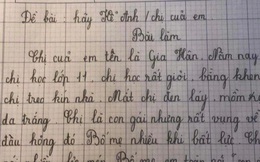 Đề bài : hãy kể anh / chị của em
Bài làm
Chị của em tên là Gia Hân. Năm nay
chị học lớp 11. chị học rất giỏi, bằng khen
chị treo kín nhà. Mắt chị đen láy, mồm
da trắng. Chị là con gái nhưng rất vụng về
đầu hồng đó Bố mẹ nhiều khi bất lực. Ch